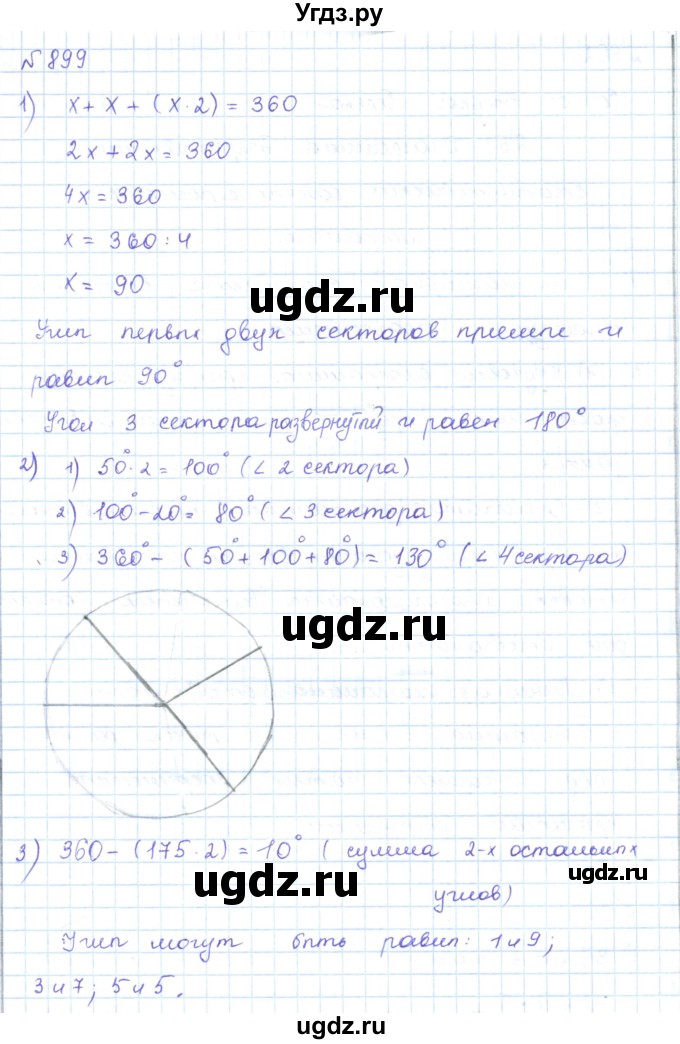 Угдз.ру
№ 899
1) x + x + (x · 2) = 360
2x + 2x = 360
4x = 360
x = 360 : 4
x = 90
ugdz.ru
Углы первых двух секторов прямые и
равны 90°
Угол 3 сектора развернутый и равен 180°
2) 1) 50° · 2 = 100° (∠ 2 сектора)
2) 100° - 20° = 80° (∠ 3 сектора)
3) 360° - (50° + 100° + 80°) = 130° (∠ 4 сектора)
ugdz.ru
3) 360 - (175 · 2) = 10° ( сумма 2-х остальных
ugdz.ru
ugdz.ru
углов)
Углы могут быть равны: 1 и 9;
3 и 7; 5 и 5.
ugdz.ru